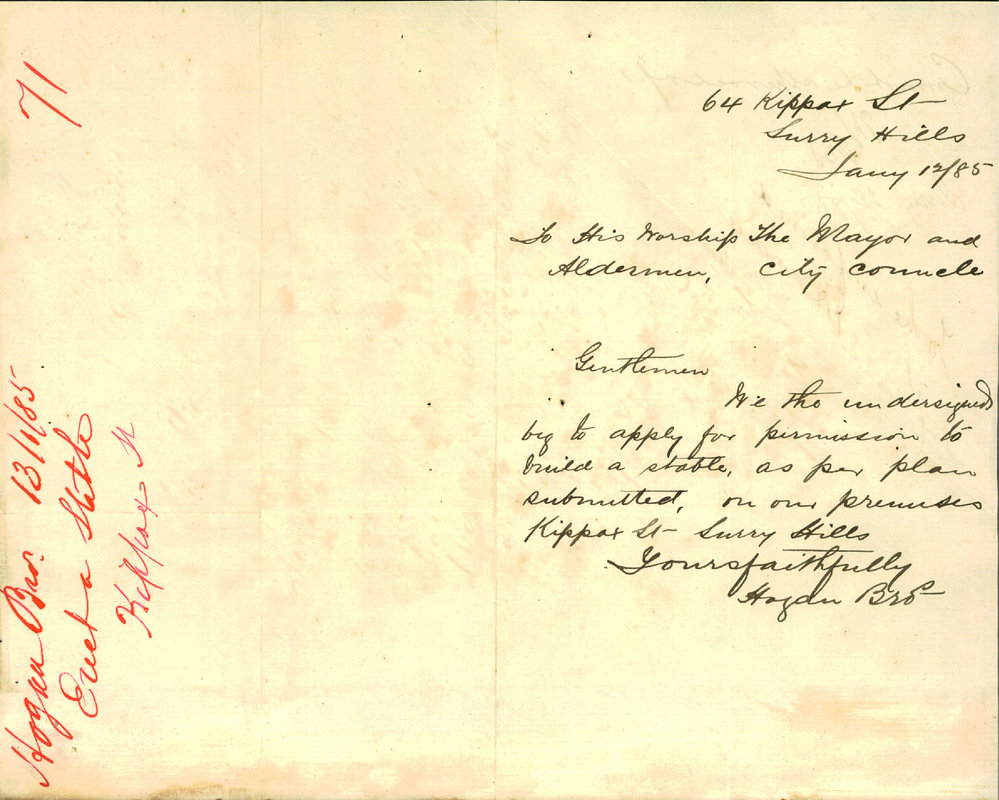 64 Kippax St
Surry Hills
Jany 12/85
To His Worship The Mayor and
Aldermen, City Councle
Gentlemen
We the undersigned
beg to apply for permission to
build a stable, as per plan
submitted, on our premises
Kippax St Surry Hills
Yours faithfully
Hogan Bros
71
Hogan Bros. 13/1/85
Erect a Stable
Kippax St